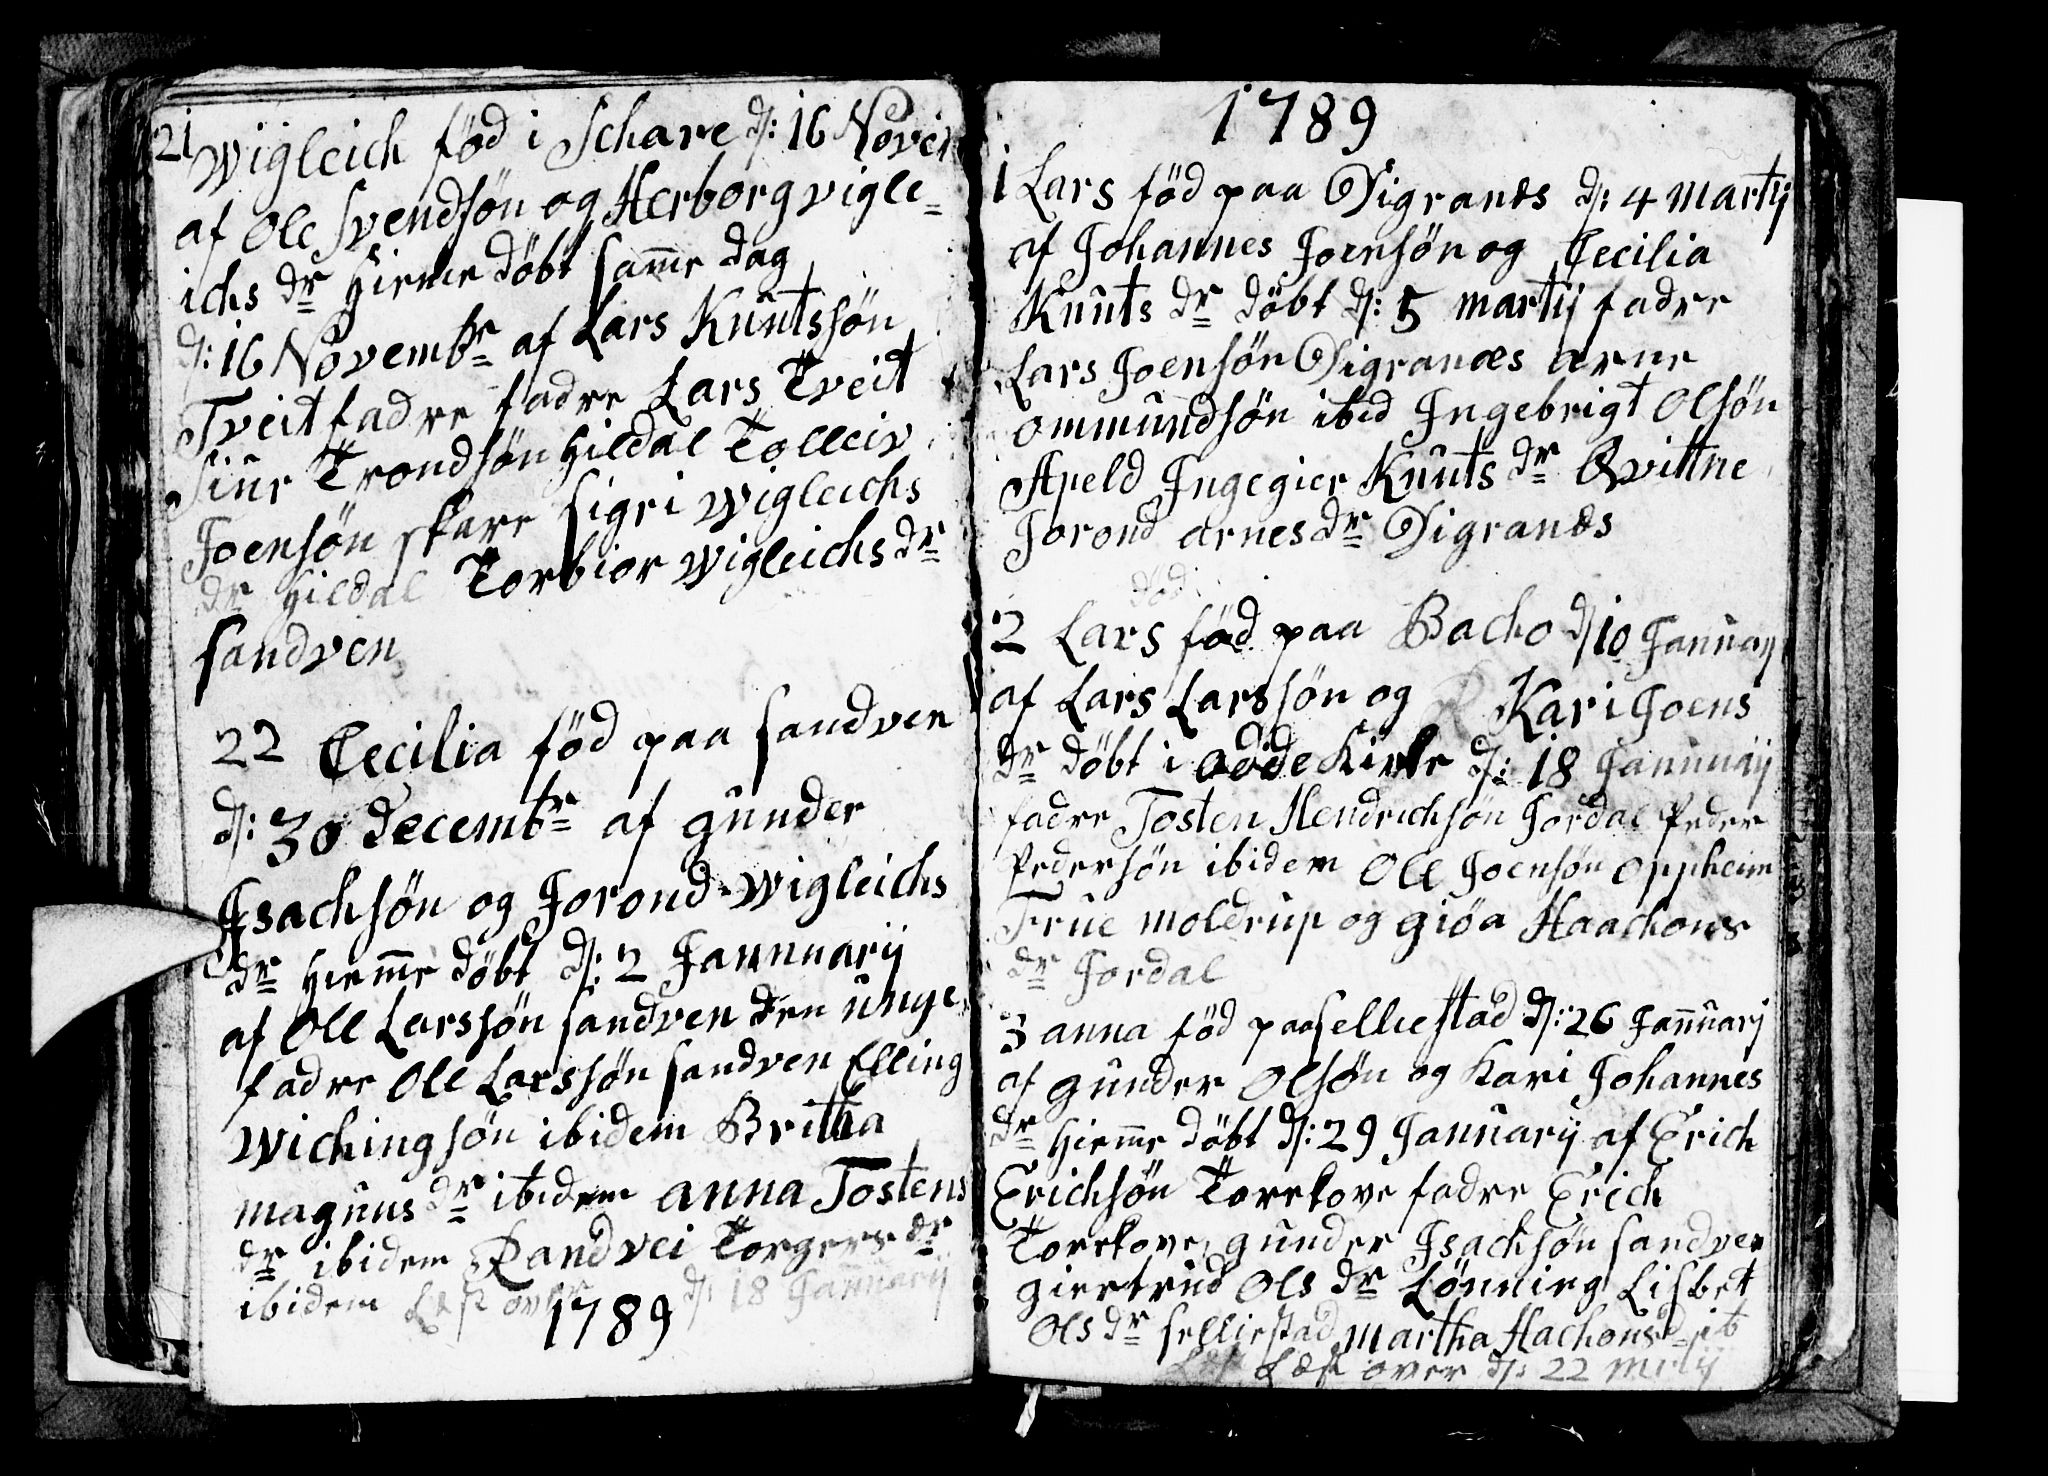 21 Wigleich föd i Schare d: 16 Nover
af Ole Svendsön og Herborg vigle=
ichs dr hieme döbt same dag
d: 16 Novembr af Lars Knutssön
Tveit fadre fadre Lars Tveit
Siur Trondsön Hildal Tolleiv
Joensön skare Sigri Wigleichs
dr Hildal Torbior Wigleichs dr
sandven
22 Cecilia föd paa sandven
d: 30 decembr af gunder
Isachsön og Jorond Wigleichs
dr hieme döbt d: 2 Januarij
af Ole Larssön sandven den unge
fadre Ole Larssön sandven Elling
Wichingsön ibidem Britha
magnus dr ibidem anna Tostens
dr ibidem Randvei Torgers dr
ibidem Læst over d: 18 Januarij
1789
1789
1 Lars föd paa Digranæs d: 4 martij
af Johannes Joensön og Cecilia
Knuts dr döbt d: 5 martij fadre
Lars Joensön Digranæs arne
ommundsön ibid Ingebrigt Olsön
Apeld Ingegier Knuts dr Qvittne
Jorond arnes dr Digranæs
död
2 Lars föd paa Bacho d 10 Januarj
af Lars Larssön og Kari Joens
dr döbt i odde Kirke d: 18 Januarij
fadre Tosten Hendrichsön Jordal Peder
Pedersön ibidem Ole Joensön oppheim
Frue moldrup og giöa Haachons
dr Jordal
3 anna föd paa selliestad d: 26 Januarj
af gunder Olsön og Kari Johannes
dr hieme döbt d: 29 Januarij af Erich
Erichsön Torekove fadre Erich
Torekove gunder Isachsön sandven
giertrud Ols dr Lönning Lisbet
Ols dr selliestad martha Hachons d ib
Læst over d: 22